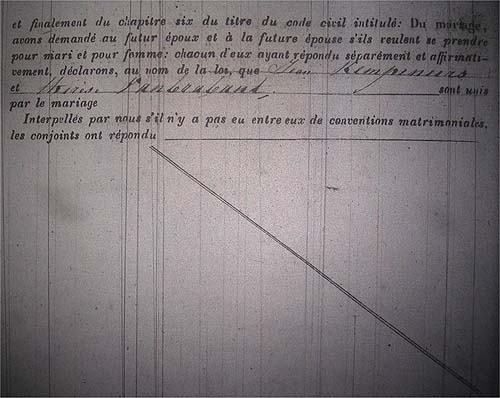 et finalement du chapitre six du titre du code civil intitulé: Du mariage,
avons demandé au futur époux et à la future épouse s'ils veulent se prendre
pour mari et pour femme: chacun d'eux ayant répondu séparément et affirmati-
vement, déclarons, au nom de la loi, que Jean Kempeneers
et Vanbrabant sont unis
par le mariage
Interpellés par nous s'il n'y a pas eu entre eux de conventions matrimoniales,
les conjoints ont répondu